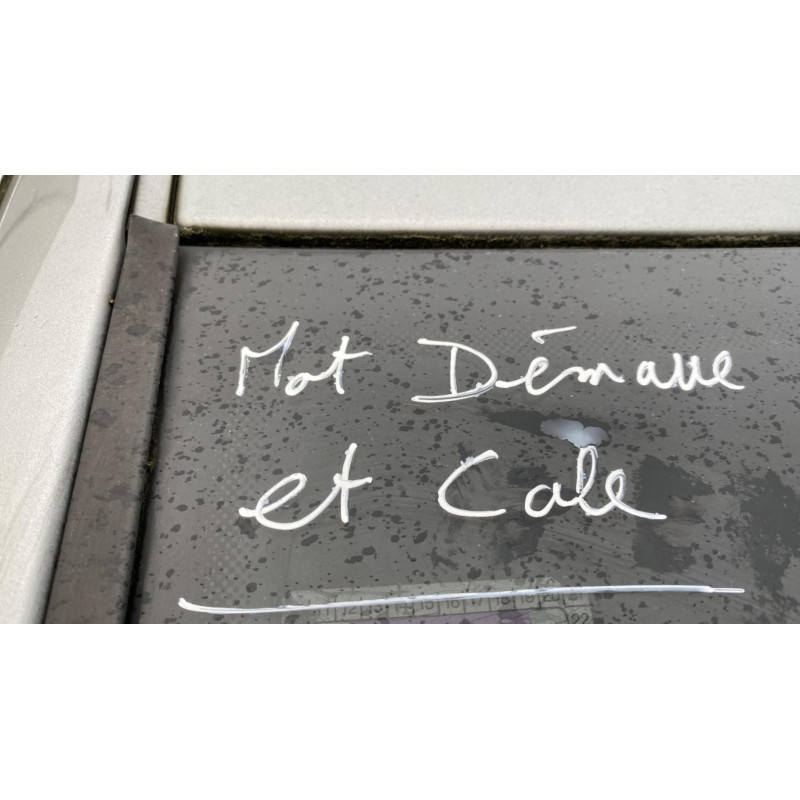 Mot Démarre
et Cale
12 13 14 15 16 17 18 19 20 21
22